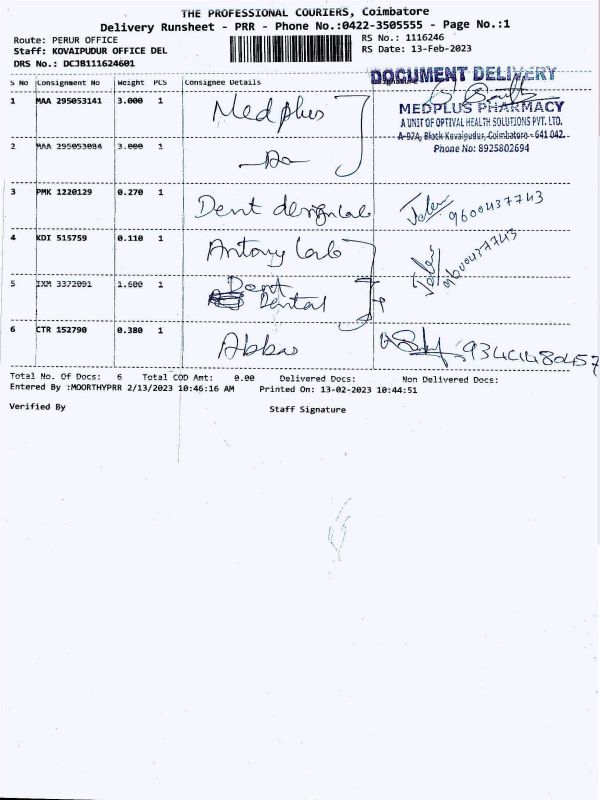 THE PROFESSIONAL COURIERS, Coimbatore
Delivery Runsheet - PRR - Phone No.:0422-3505555 - Page No.:1
Route: PERUR OFFICE RS No.: 1116246
Staff: KOVAIPUDUR OFFICE DEL RS Date: 13-Feb-2023
DRS No.: DCJB111624601
DOCUMENT DELIVERY
S No Consignment No Weight PCS Consignee Details
1 MAA 295053141 3.000 1 Medplus
MEDPLUS PHARMACY
A UNIT OF OPTIVAL HEALTH SOLUTIONS PVT. LTD.
A-97A, Block Kovaipudur, Coimbatore - 641 042.
Phone No: 8925802694
2 MAA 295053084 3.000 1 -Do-
3 PMK 1220129 0.270 1 Dent design lab 9600437743
4 KDI 515759 0.110 1 Antony lab 9600437743
5 IXM 3372091 1.600 1 Dent Dental
6 CTR 152790 0.380 1 Abbas
Total No. Of Docs: 6 Total COD Amt: 0.00 Delivered Docs: Non Delivered Docs:
Entered By :MOORTHYPRR 2/13/2023 10:46:16 AM Printed On: 13-02-2023 10:44:51
Verified By Staff Signature